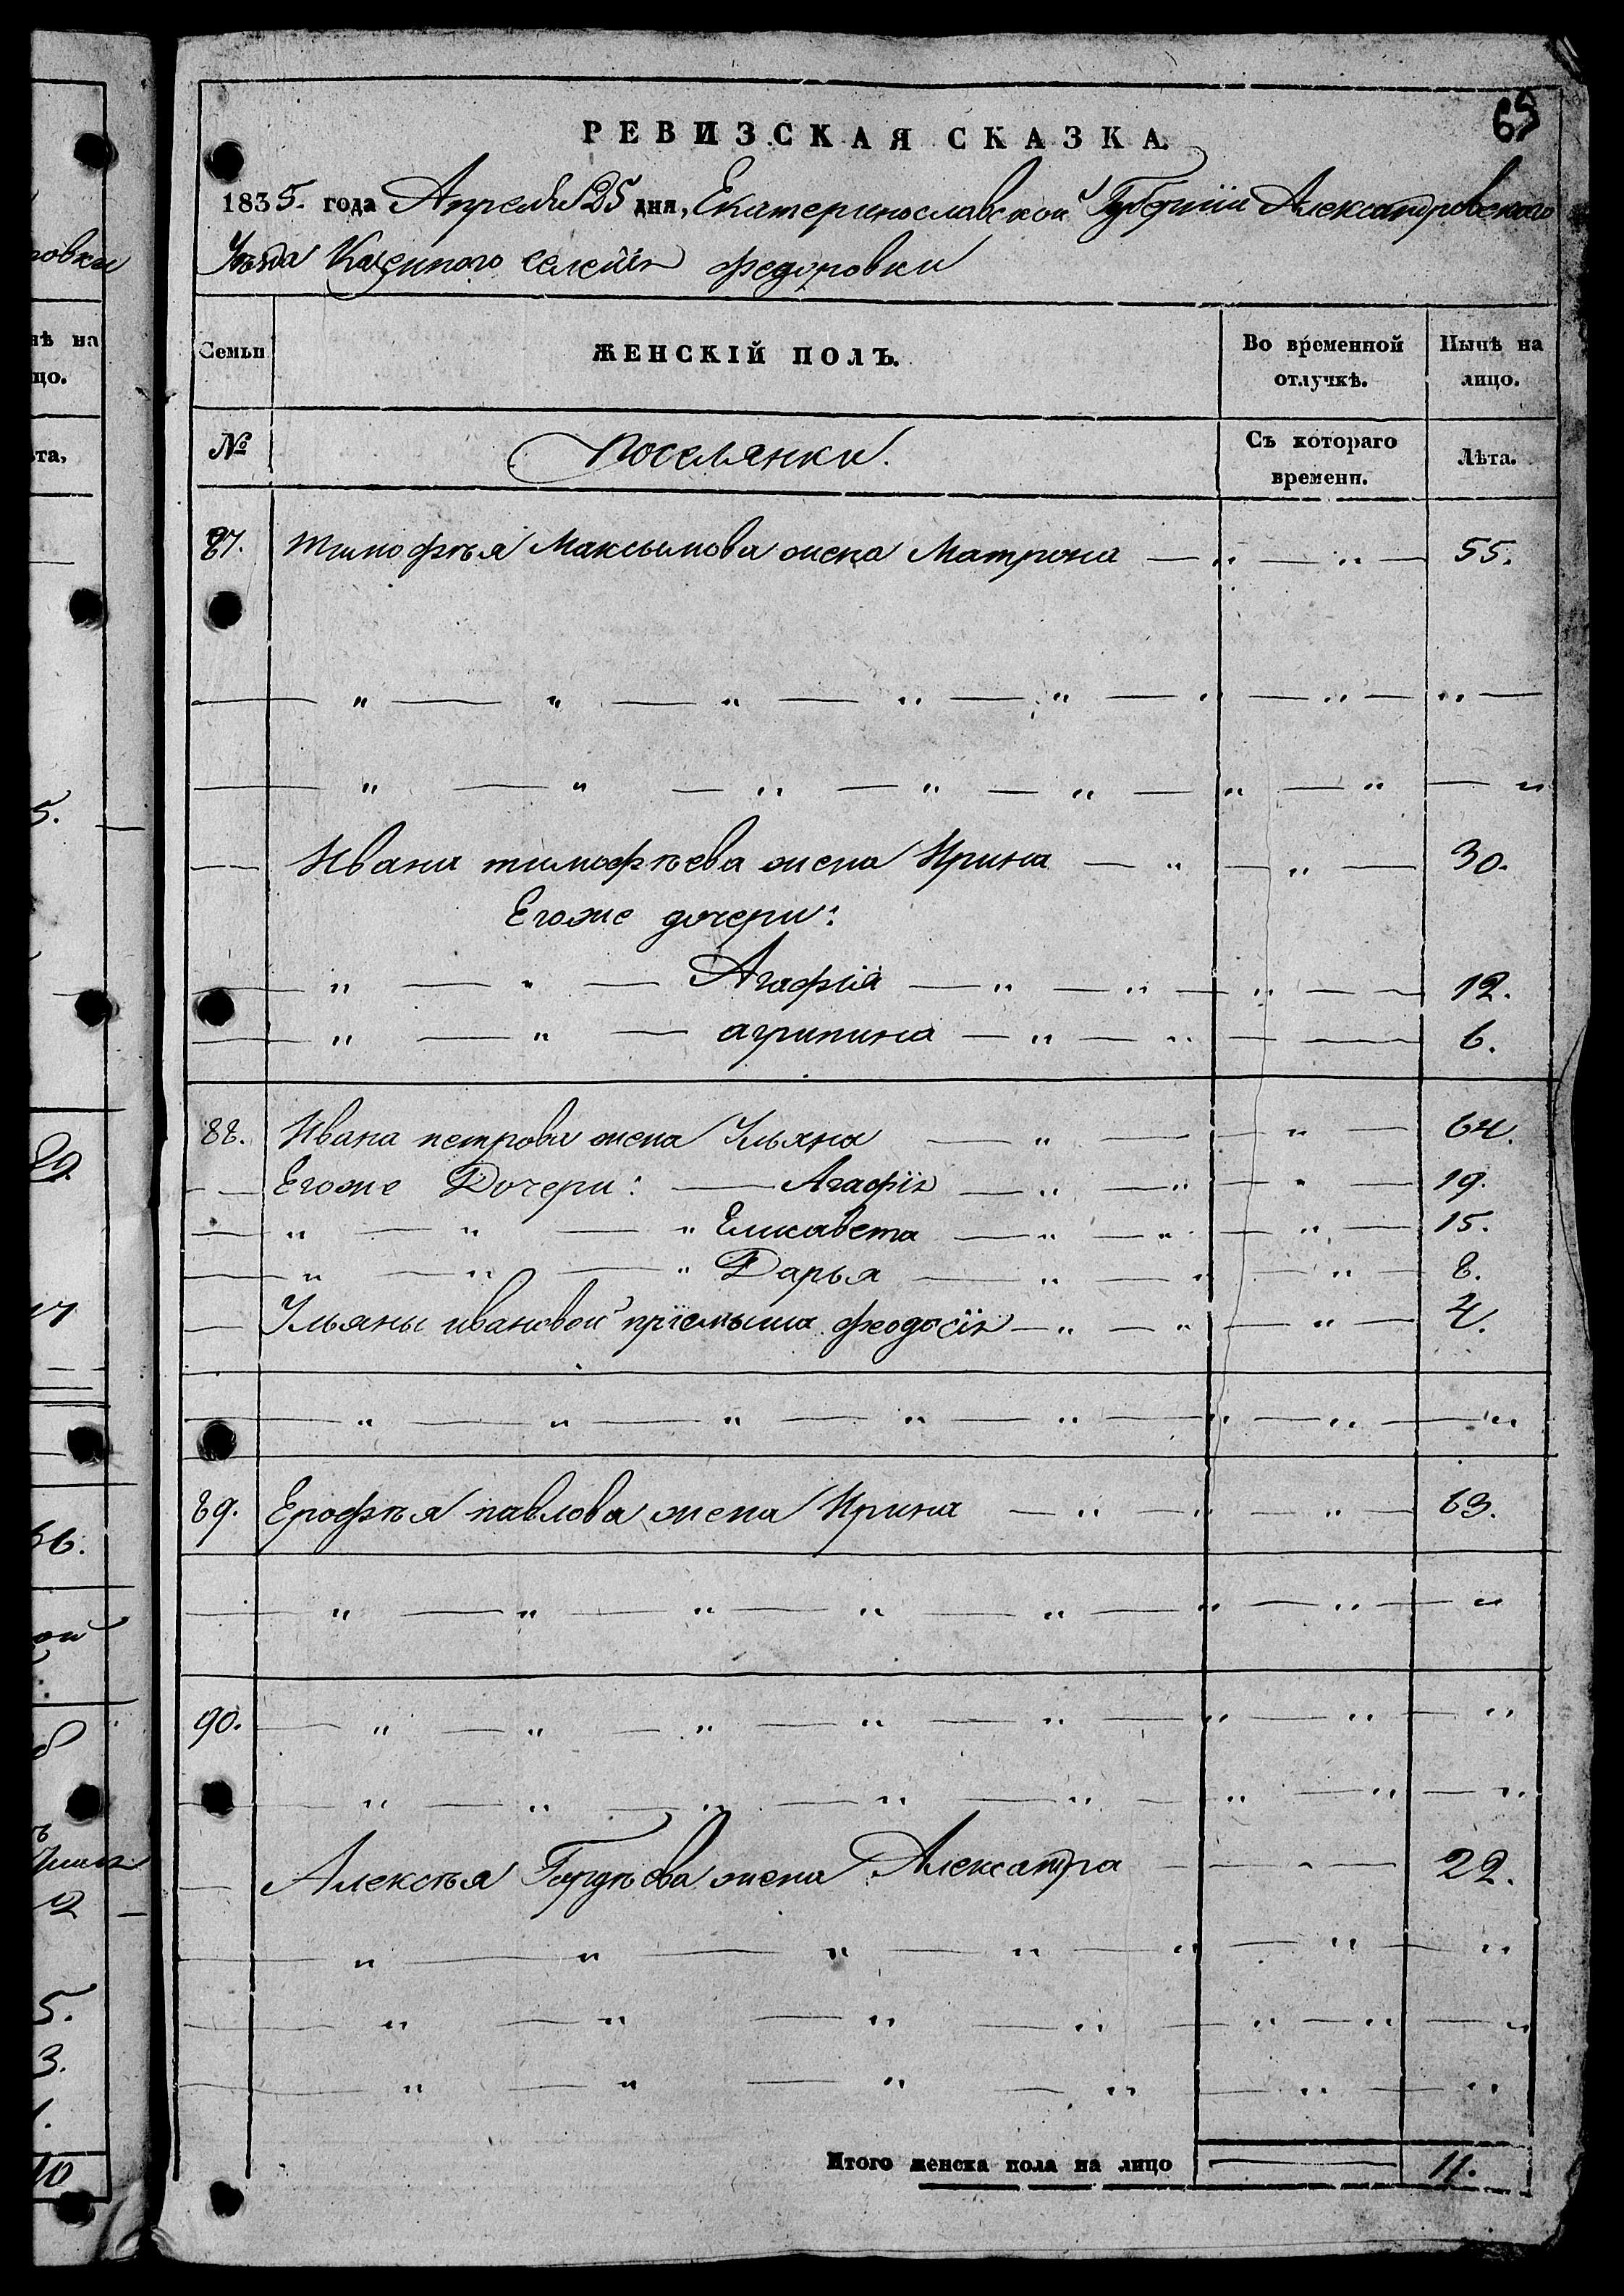 65
РЕВИЗСКАЯ СКАЗКА.
1835. года Апреля 25 дня, Екатеринославской Губерніи Александровского
Уезда Казенного селенія Федоровки
Семьи ЖЕНСКІЙ ПОЛЪ. Во временной отлучкѣ. Нынѣ на лицо.
№ поселянки. Съ котораго времени. Лѣта.
87. тимофѣя Максимова жена Матрона — " — " — 55.
— " — " — " — " — " — " — " — " —
— " — " — " — " — " — " — " — "
— Ивана тимофѣева жена Ирина — " — " — 30.
Егоже дочери:
— " — " — Агафія — " — " — " — — 12.
— " — " — агрипина — " — " — — 6.
88. Ивана петрова жена Ульяна — " — " — 64.
— Егоже Дочери: — Агафія — " — " — " — 19.
— " — " — " Елисавета — " — " — " — 15.
— " — " — " Дарья — " — " — " — 8.
— Ульяны ивановой пріемыша феодосія — " — " — " — 4.
— " — " — " — " — " — " — " — "
89. Ерофѣя павлова жена Ирина — " — " — " — 63.
— " — " — " — " — " — " — " — "
90. — " — " — " — " — " — " — " — "
— " — " — " — " — " — " — " — "
— Алексѣя Гордѣева жена Александра — — " — 22.
— " — " — " — " — " — " — "
— " — " — " — " — " — " — "
— " — " — " — " — " — "
Итого женска пола на лицо — 11.